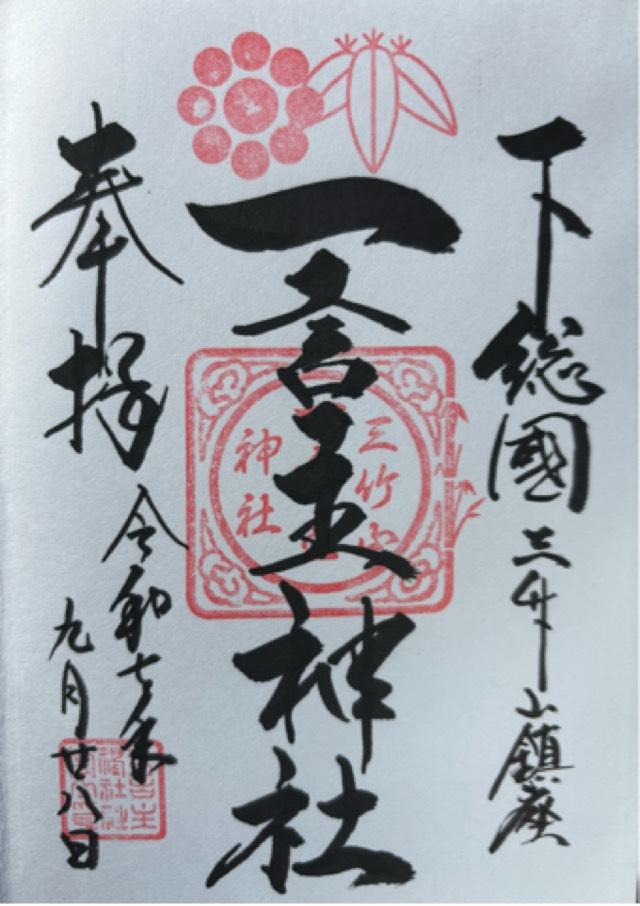 下総國三竹山鎮座
一言主神社
三竹山
神社
奉拝
令和七年
九月廿八日